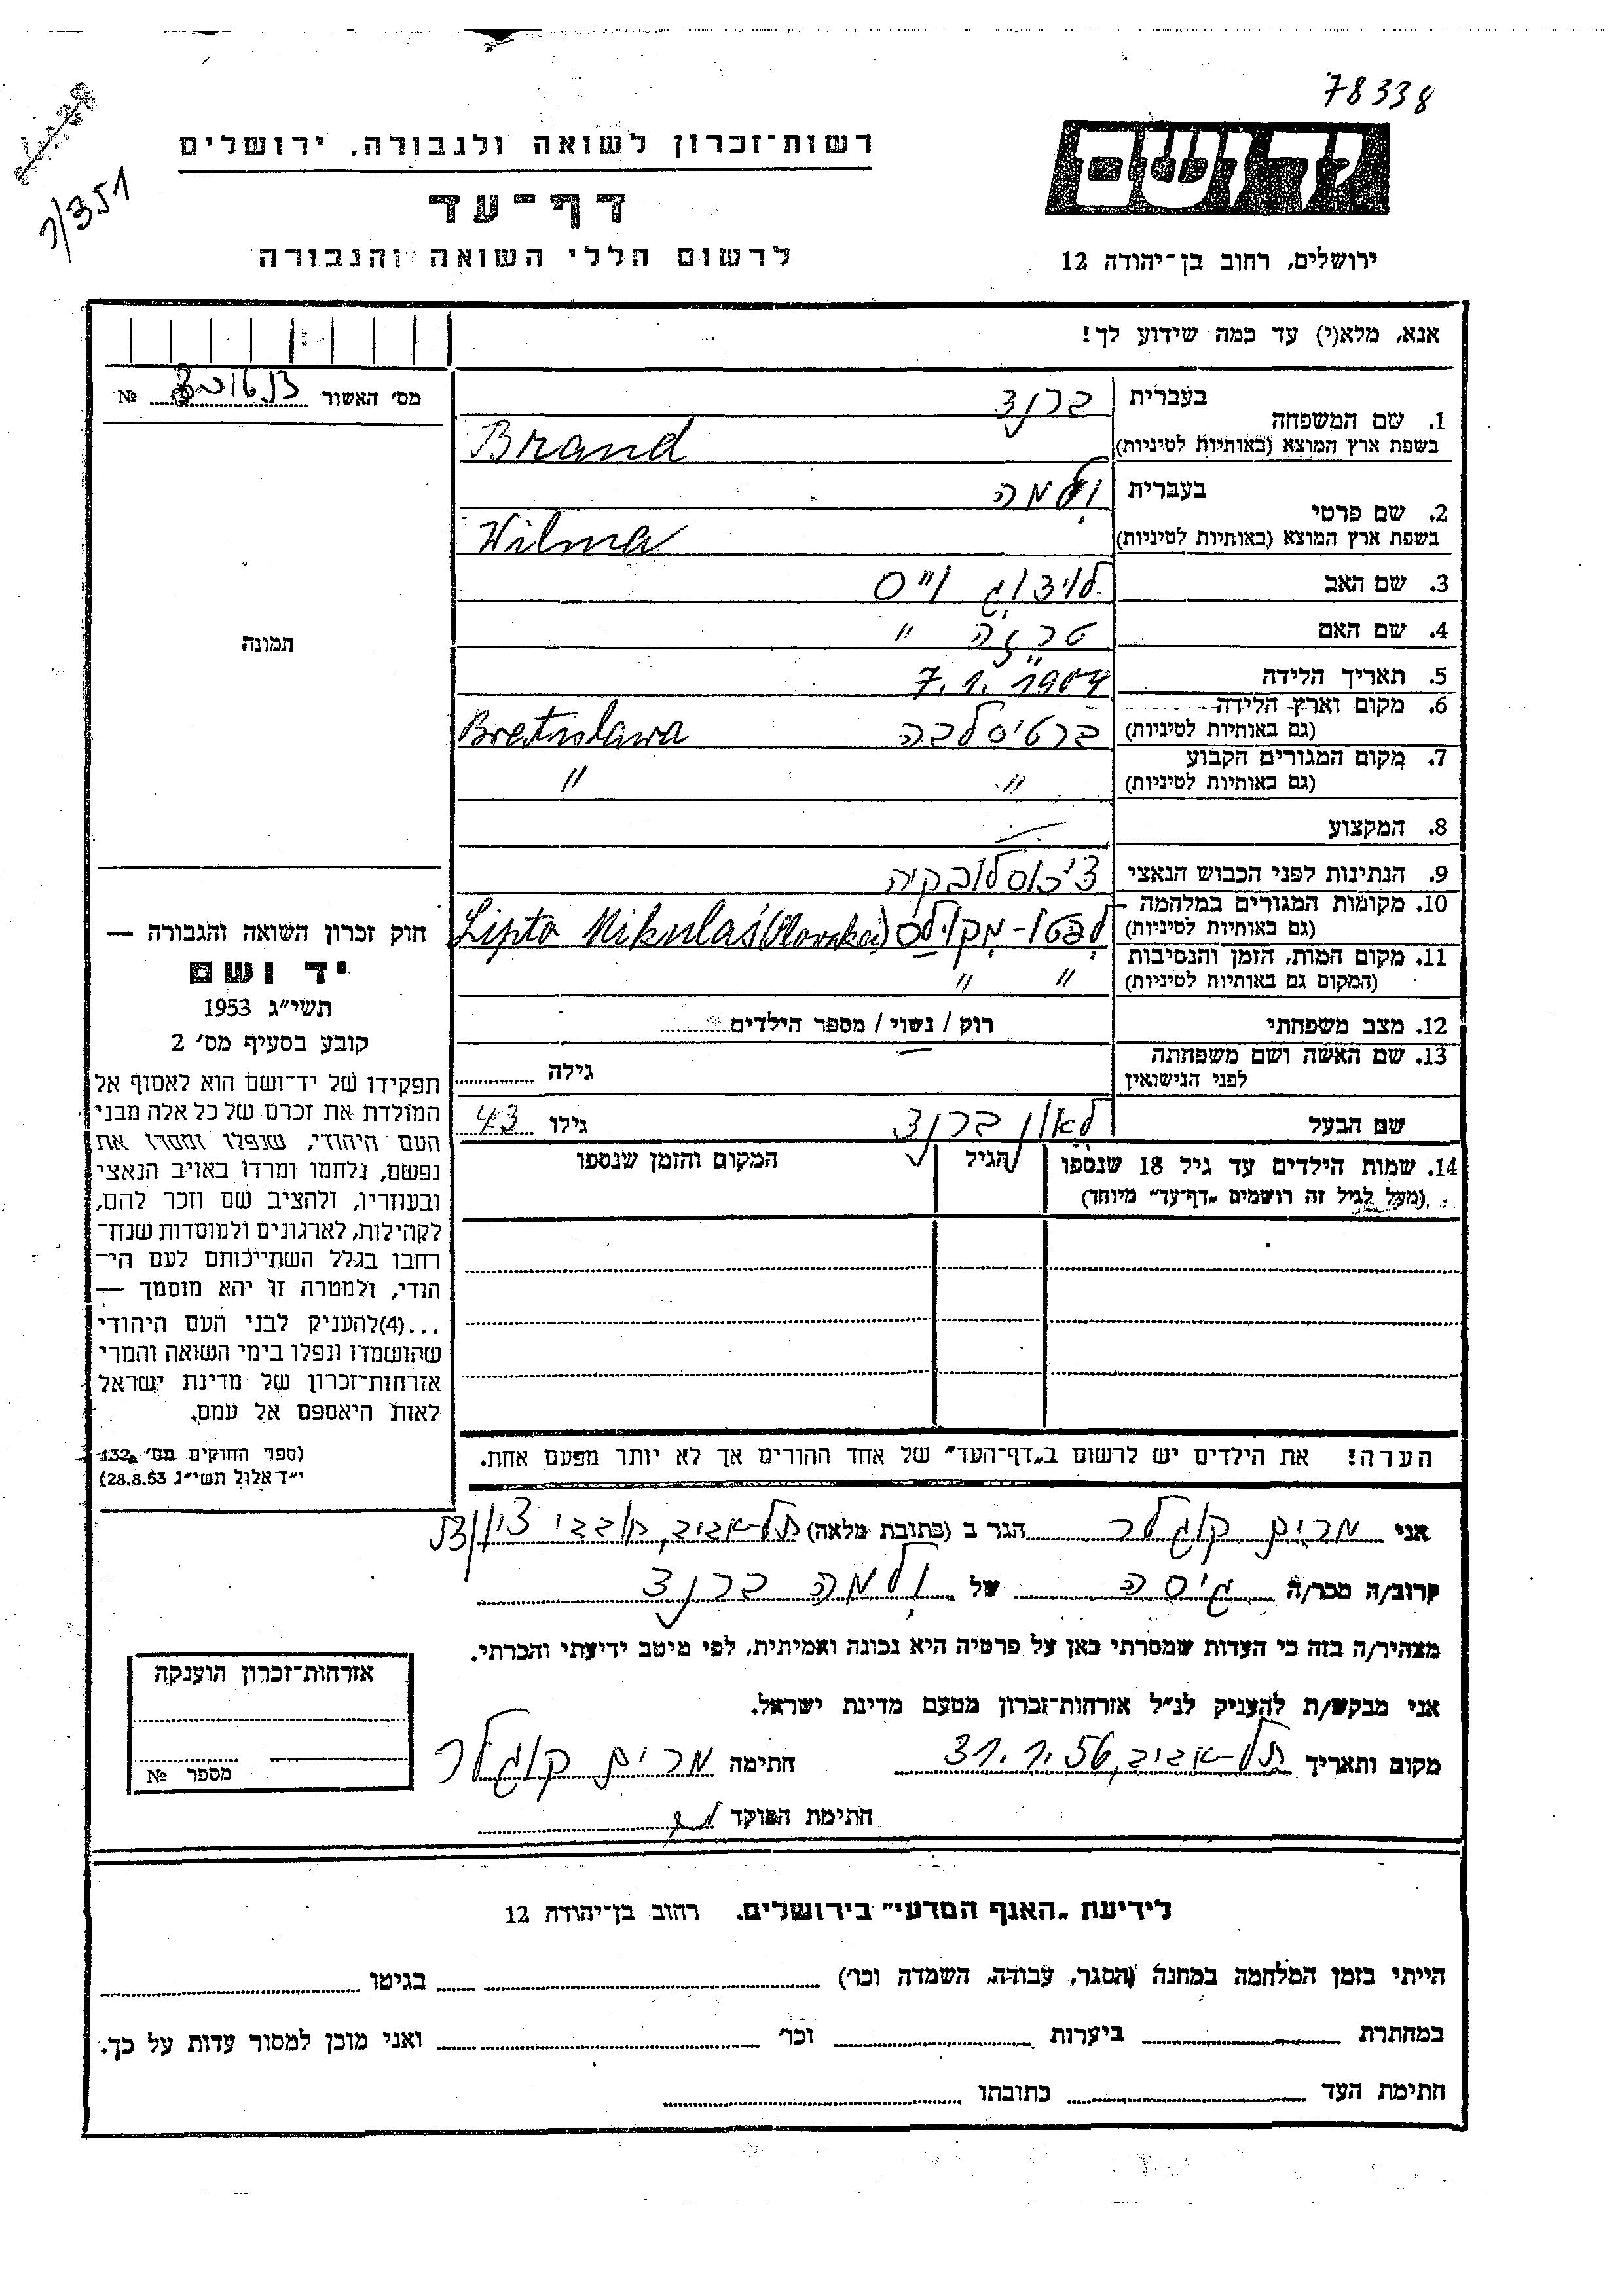 78338
ר/351
יד ושם
רשות־זכרון לשואה ולגבורה, ירושלים
דף־עד
לרשום חללי השואה והגבורה
ירושלים, רחוב בן־יהודה 12
אנא, מלא(י) עד כמה שידוע לך!
מס׳ האשור №
1. שם המשפחה בעברית ברנד
בשפת ארץ המוצא (באותיות לטיניות) Brand
2. שם פרטי בעברית וילמה
בשפת ארץ המוצא (באותיות לטיניות) Wilma
3. שם האב לודויג וייס
4. שם האם טרזה "
5. תאריך הלידה 7.1.1904
6. מקום וארץ הלידה
(גם באותיות לטיניות) ברטיסלבה Bratislawa
7. מקום המגורים הקבוע
(גם באותיות לטיניות) " "
8. המקצוע —
9. הנתינות לפני הכבוש הנאצי צ'כוסלובקיה
10. מקומות המגורים במלחמה
(גם באותיות לטיניות) לפטו-מקולס Lipto Mikulaš
11. מקום המות, הזמן והנסיבות
(המקום גם באותיות לטיניות) " "
12. מצב משפחתי רוק / נשוי / מספר הילדים
13. שם האשה ושם משפחתה
לפני הנישואין — גילה
שם הבעל לאון ברנד גילו 43
14. שמות הילדים עד גיל 18 שנספו הגיל המקום והזמן שנספו
(מעל לגיל זה רושמים „דף־עד" מיוחד)
הערה! את הילדים יש לרשום ב„דף־העד" של אחד ההורים אך לא יותר מפעם אחת.
תמונה
חוק זכרון השואה והגבורה —
יד ושם
תשי״ג 1953
קובע בסעיף מס׳ 2
תפקידו של יד־ושם הוא לאסוף אל
המולדת את זכרם של כל אלה מבני
העם היהודי, שנפלו ומסרו את
נפשם, נלחמו ומרדו באויב הנאצי
ובעוזריו, ולהציב שם וזכר להם,
לקהילות, לארגונים ולמוסדות שנח־
רבו בגלל השתייכותם לעם הי־
הודי, ולמטרה זו יהא מוסמך —
...(4)להעניק לבני העם היהודי
שהושמדו ונפלו בימי השואה והמרי
אזרחות־זכרון של מדינת ישראל
לאות היאספם אל עמם.
(ספר החוקים מס׳ 132,
י״ד אלול תשי״ג 28.8.53)
אני מרים קוגלר הגר ב (כתובת מלאה) תל-אביב, חובבי ציון
קרוב/ה מכר/ה גיסה של וילמה ברנד
מצהיר/ה בזה כי העדות שמסרתי כאן על פרטיה היא נכונה ואמיתית, לפי מיטב ידיעתי והכרתי.
אני מבקש/ת להעניק לנ״ל אזרחות־זכרון מטעם מדינת ישראל.
מקום ותאריך תל-אביב, 31.1.56 חתימה מרים קוגלר
חתימת הפוקד
אזרחות־זכרון הוענקה
מספר №
לידיעת „האגף המדעי" בירושלים. רחוב בן־יהודה 12
הייתי בזמן המלחמה במחנה (הסגר, עבודה, השמדה וכו׳) בגיטו
במחתרת ביערות וכו׳ ואני מוכן למסור עדות על כך.
חתימת העד כתובתו